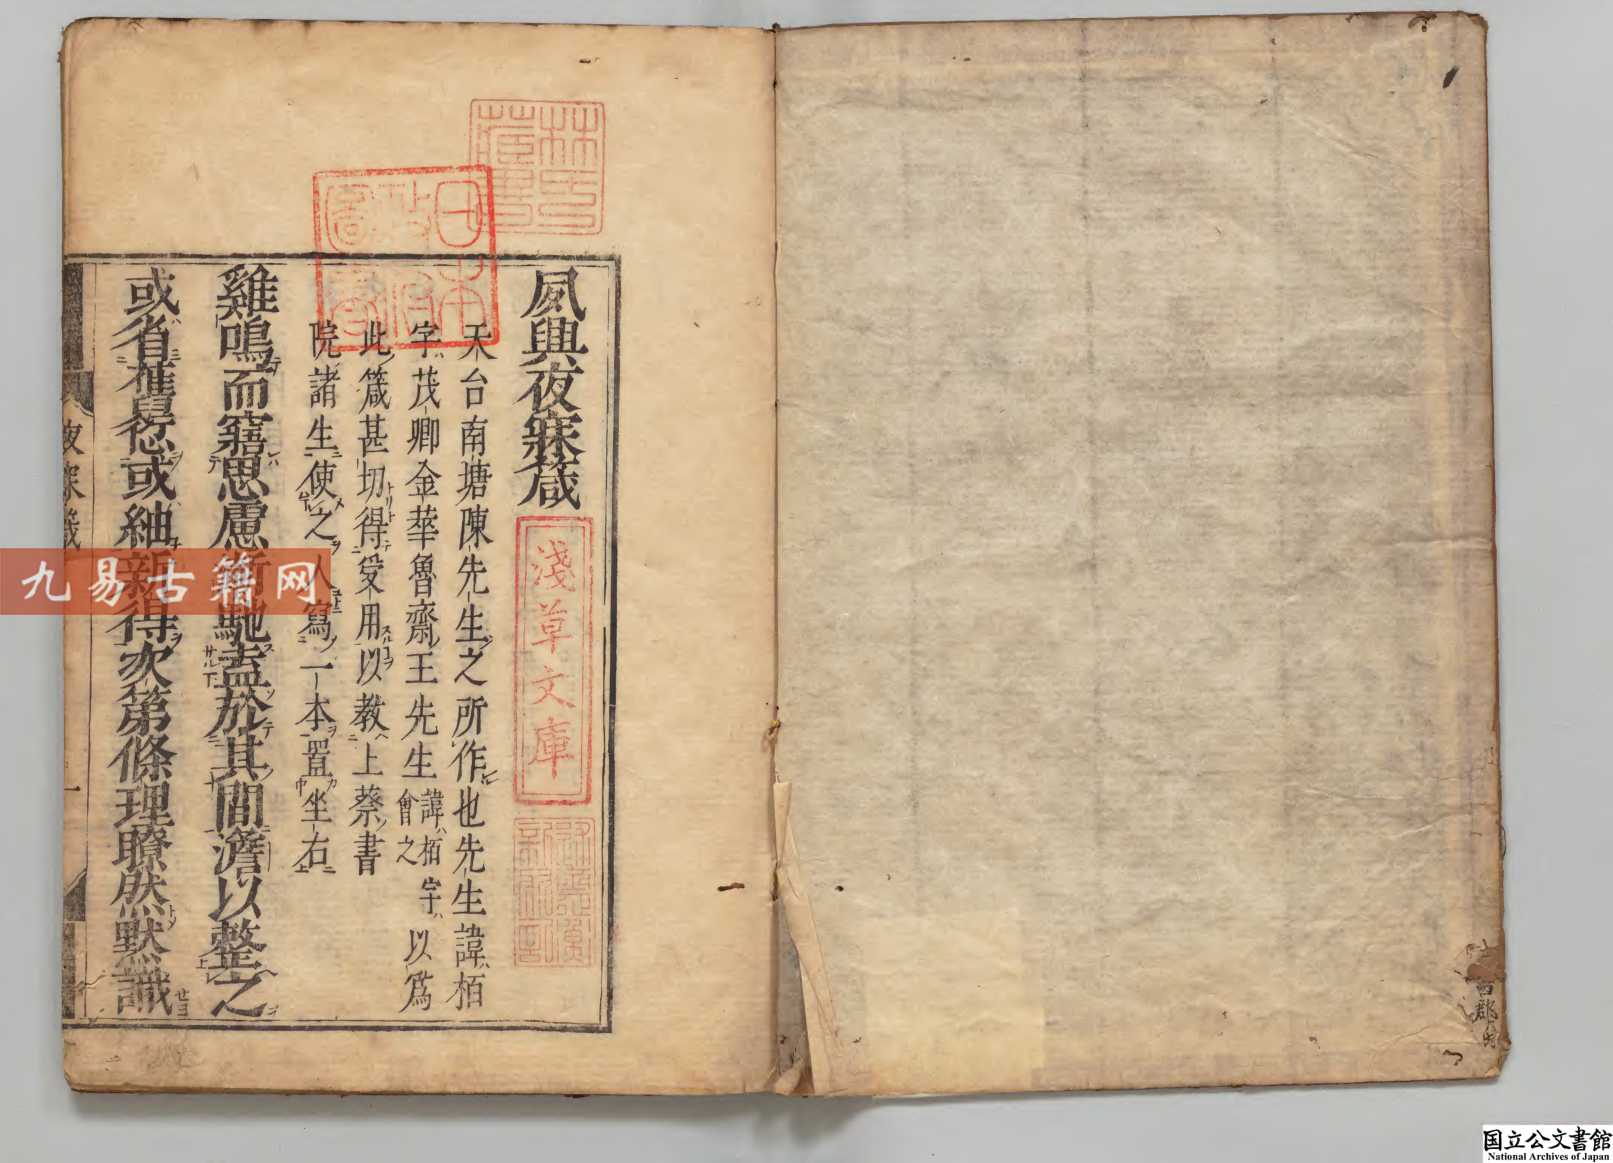 夙興夜寐箴
天台南塘陳先生之所作也先生諱栢
字茂卿金華魯齋王先生諱栢字會之以爲
此箴甚切得受用以教上蔡書
院諸生使之人寫一本置坐右
雞鳴而寤思慮漸馳盍於其間澹以整之
或省舊愆或紬新得次第條理瞭然默識
夜寐箴
一
林氏藏書
日本政府圖書
淺草文庫
九易古籍网
国立公文書館
National Archives of Japan